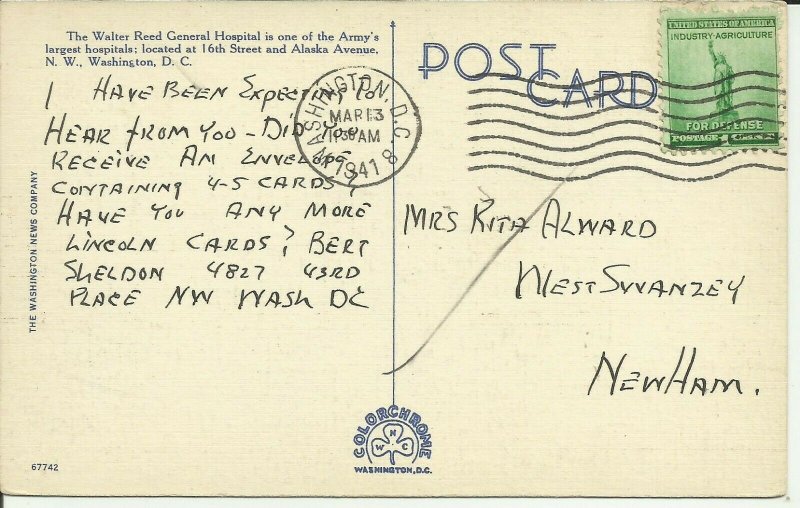 The Walter Reed General Hospital is one of the Army's
largest hospitals; located at 16th Street and Alaska Avenue,
N. W., Washington, D. C.
I HAVE BEEN EXPECTING TO
HEAR FROM YOU - DID YOU
RECEIVE AN ENVELOPE
CONTAINING 4-5 CARDS?
HAVE YOU ANY MORE
LINCOLN CARDS? BERT
SHELDON 4827 43RD
PLACE NW WASH DC
THE WASHINGTON NEWS COMPANY
67742
POST
CARD
WASHINGTON, D.C.
MAR 13
AM
1941
8
UNITED STATES OF AMERICA
INDUSTRY-AGRICULTURE
FOR DEFENSE
POSTAGE 1 CENT
MRS RITA ALWARD
WEST SWANZEY
NEW HAM.
COLORCHROME
W N C
WASHINGTON, D.C.